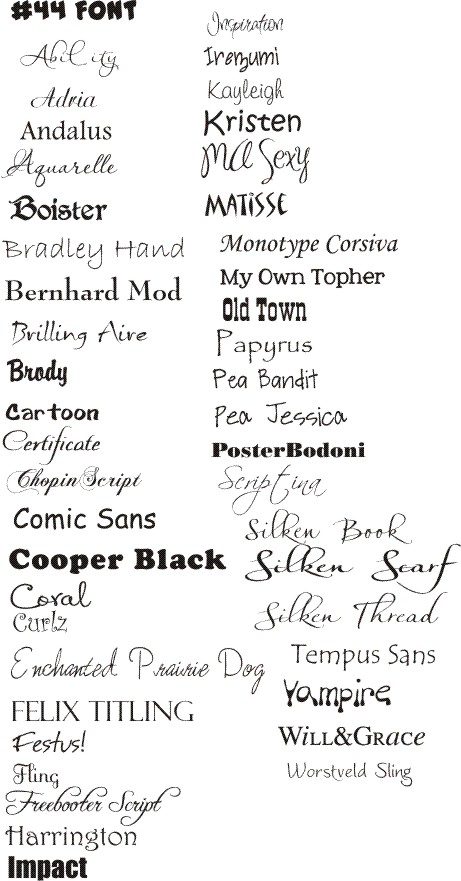 #44 FONT
Ability
Adria
Andalus
Aquarelle
Boister
Bradley Hand
Bernhard Mod
Brilling Aire
Brody
Cartoon
Certificate
ChopinScript
Comic Sans
Cooper Black
Coral
Curlz
Enchanted Prairie Dog
FELIX TITLING
Festus!
Fling
Freebooter Script
Harrington
Impact
Inspiration
Irezumi
Kayleigh
Kristen
MA Sexy
MATISSE
Monotype Corsiva
My Own Topher
Old Town
Papyrus
Pea Bandit
Pea Jessica
PosterBodoni
Scriptina
Silken Book
Silken Scarf
Silken Thread
Tempus Sans
Vampire
WILL&GRACE
Worstveld Sling